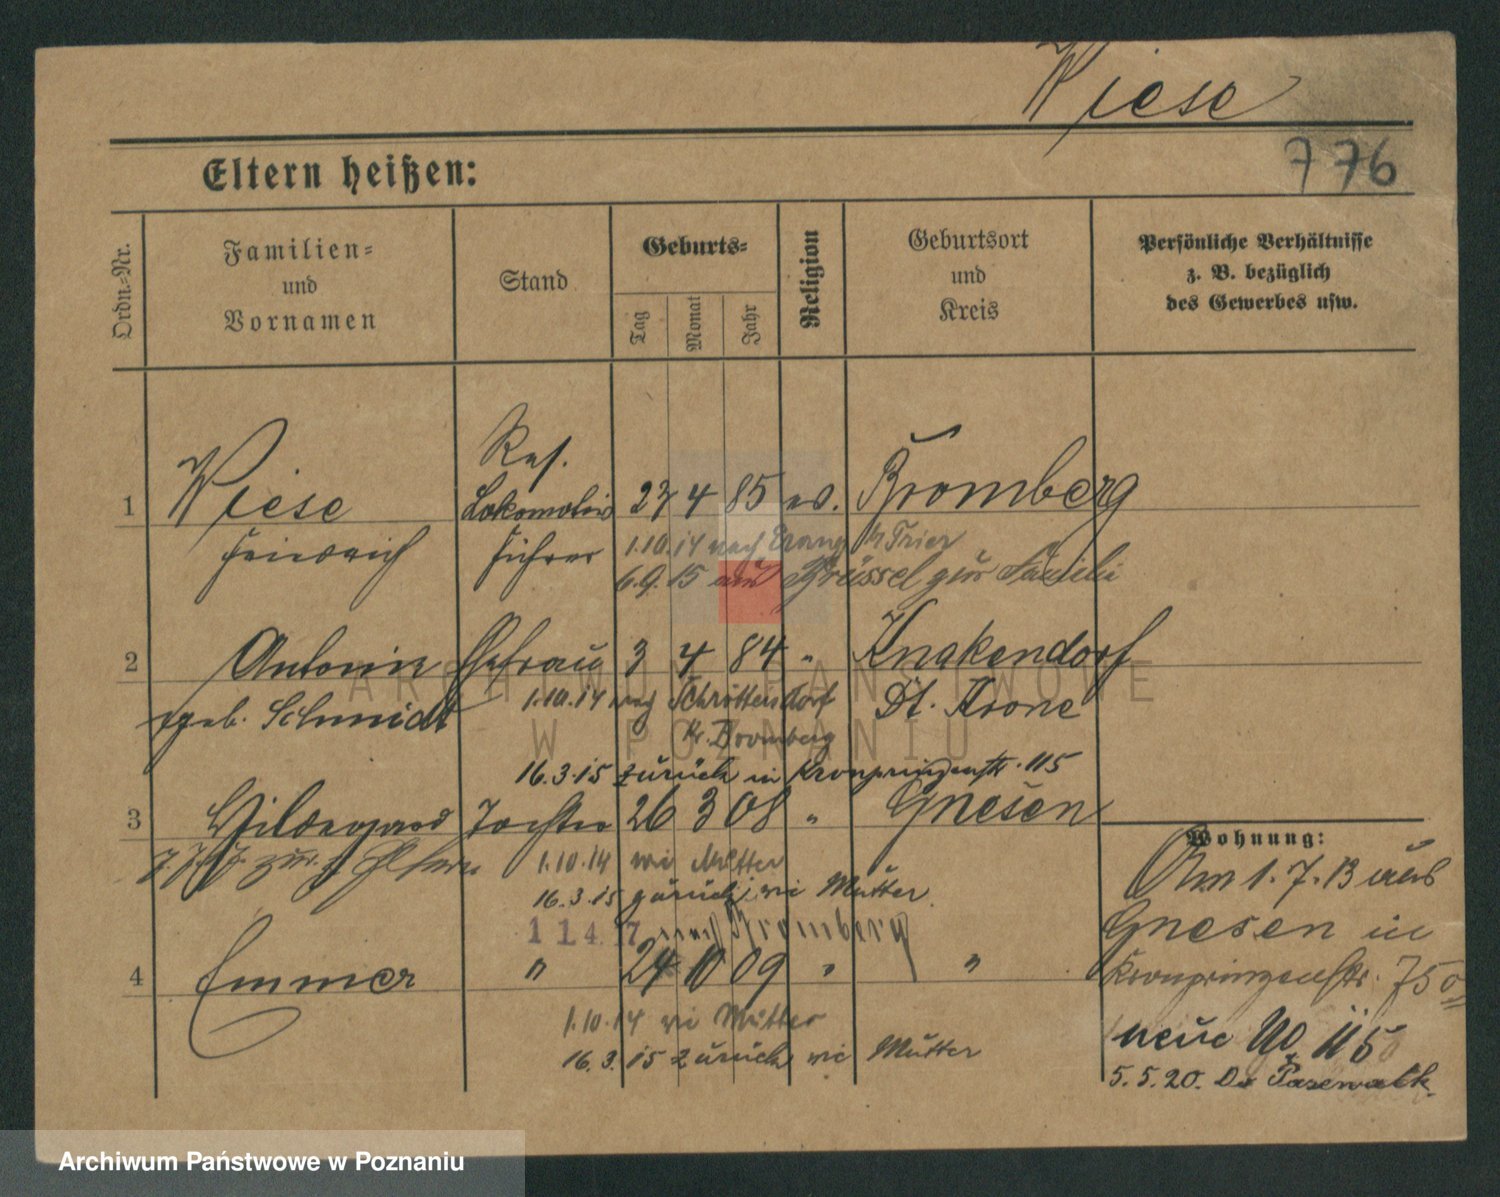 Wiese
776
Eltern heißen:
Ordn.-Nr.
Familien-
und
Vornamen
Stand
Geburts-
Tag
Monat
Jahr
Religion
Geburtsort
und
Kreis
Persönliche Verhältnisse
z. B. bezüglich
des Gewerbes usw.
1 Wiese Res. Lokomotiv 27 4 85 ev. Bromberg
Friedrich führer 1.10.14 nach Erang b/ Trier
6.9.15 Brüssel zur Familie
2 Antonie Ehefrau 3 4 84 " Knakendorf
geb. Schmidt 1.10.14 nach Schröttersdorf Dt. Krone
Kr. Bromberg
16.3.15 zurück in Kronprinzenstr. 115
3 Hildegard Tochter 26 3 08 " Gnesen
1.10.14 wie Mutter
16.3.15 zurück wie Mutter
1 1.4.17 nach Bromberg
4 " 24 10 09 " "
1.10.14 wie Mutter
16.3.15 zurück wie Mutter
Wohnung:
Am 1.7.13 aus
Gnesen in
Kronprinzenstr. 75
neue No 115
5.5.20. Pasewalk
ARCHIWUM PAŃSTWOWE
W POZNANIU
Archiwum Państwowe w Poznaniu